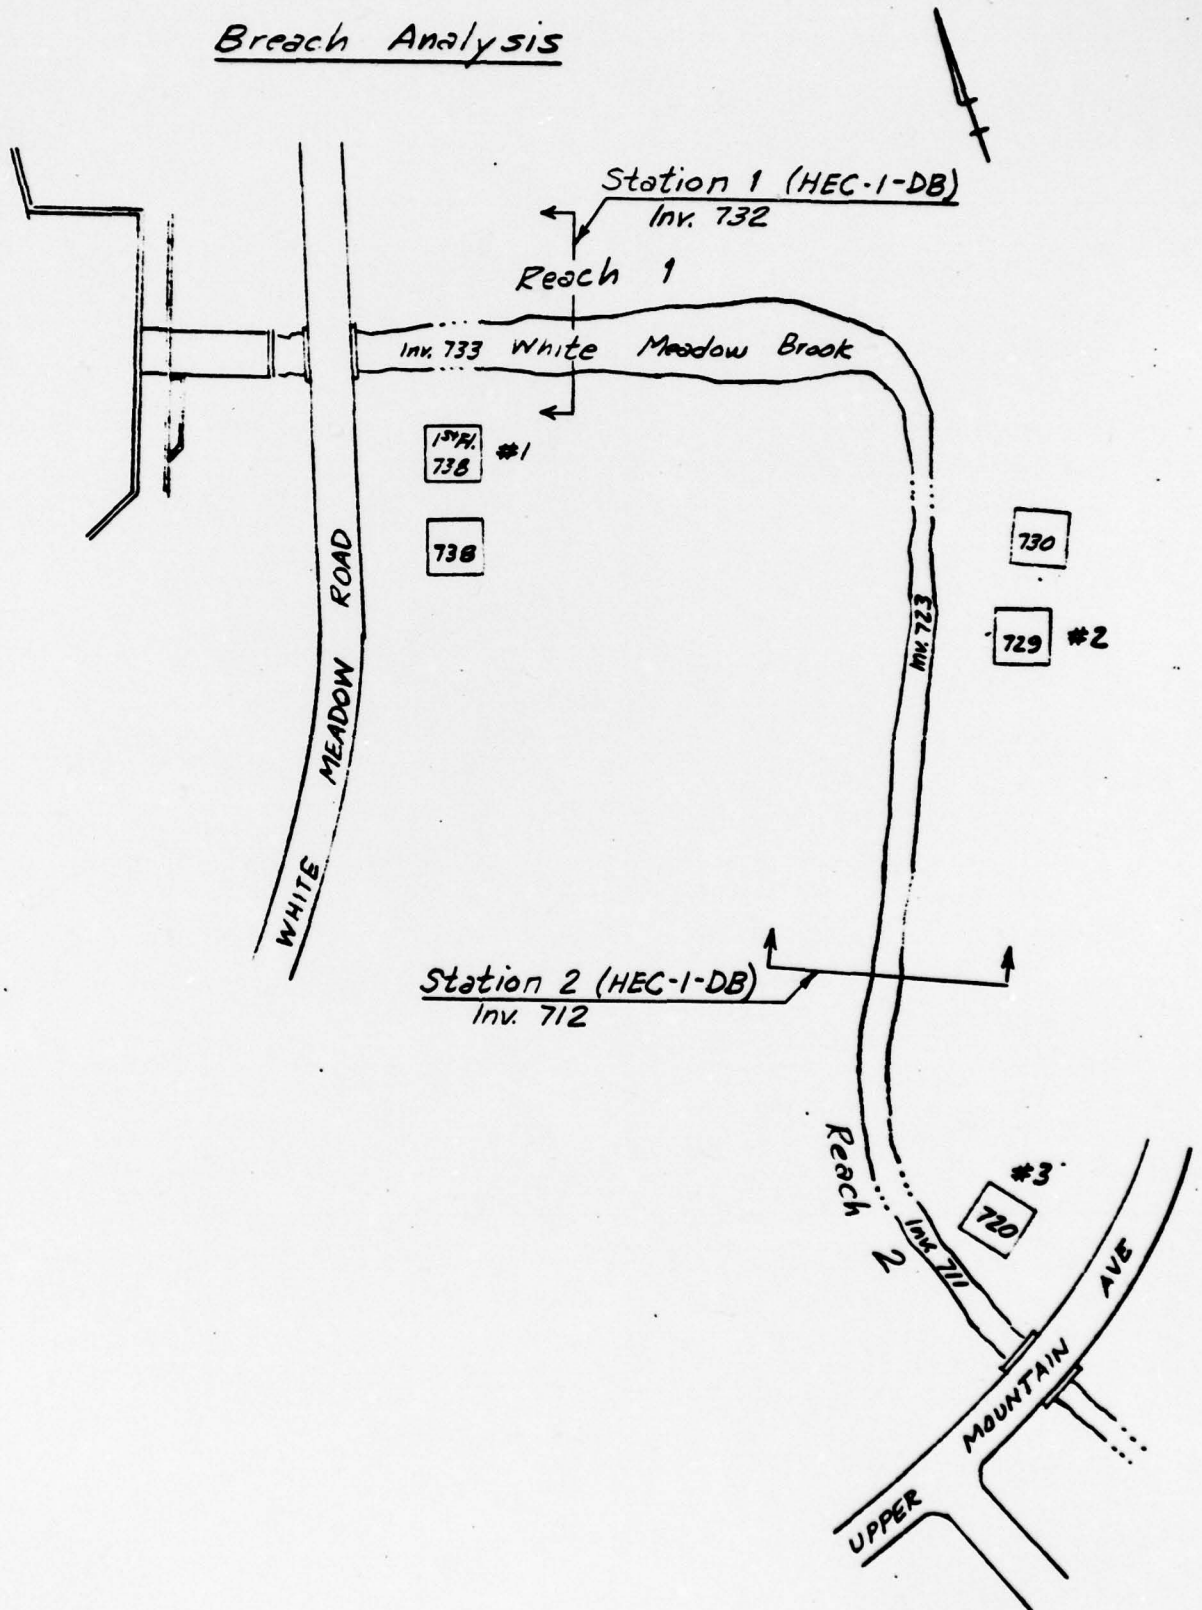 Breach Analysis
Station 1 (HEC-1-DB)
Inv. 732
Reach 1
Inv. 733 White Meadow Brook
1st Fl.
738
#1
738
730
729 #2
Inv. 723
WHITE MEADOW ROAD
Station 2 (HEC-1-DB)
Inv. 712
Reach 2
#3
720
Inv. 711
UPPER MOUNTAIN AVE